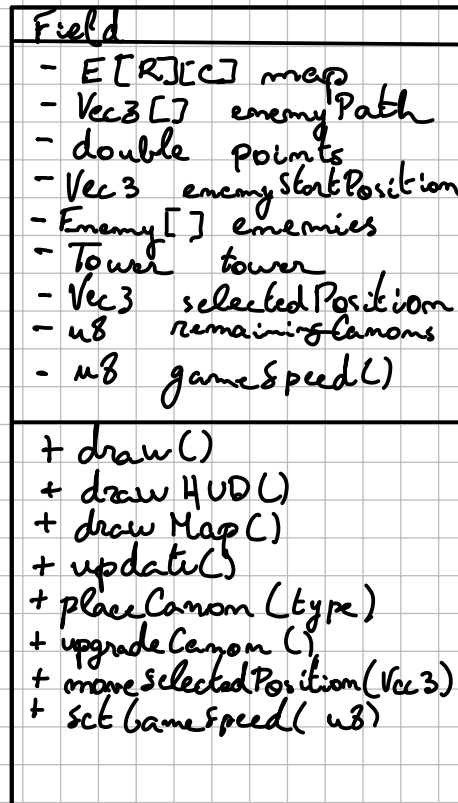 Field
- E[R][C] map
- Vec3[] enemyPath
- double points
- Vec3 enemyStartPosition
- Enemy[] enemies
- Tower tower
- Vec3 selectedPosition
- u8 remainingCanons
- u8 gameSpeed()
+ draw()
+ drawHUD()
+ drawMap()
+ update()
+ placeCanon(type)
+ upgradeCanon()
+ moveSelectedPosition(Vec3)
+ setGameSpeed(u8)